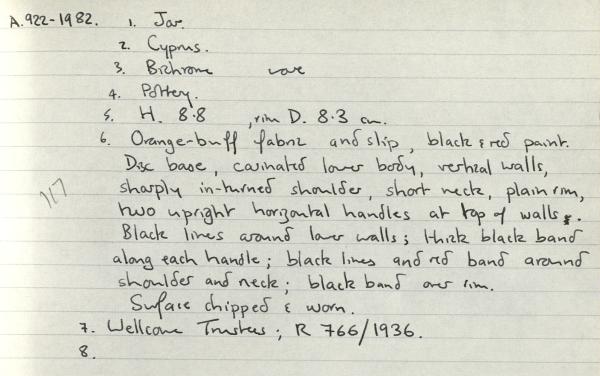 A.922-1982. 1. Jar.
2. Cyprus.
3. Bichrome ware
4. Pottery.
5. H. 8.8 , rim D. 8.3 cm.
6. Orange-buff fabric and slip, black & red paint.
Disc base, carinated lower body, vertical walls,
117
sharply in-turned shoulder, short neck, plain rim,
two upright horizontal handles at top of walls.
Black lines around lower walls; thick black band
along each handle; black lines and red band around
shoulder and neck; black band over rim.
Surface chipped & worn.
7. Wellcome Trustees; R 766/1936.
8.